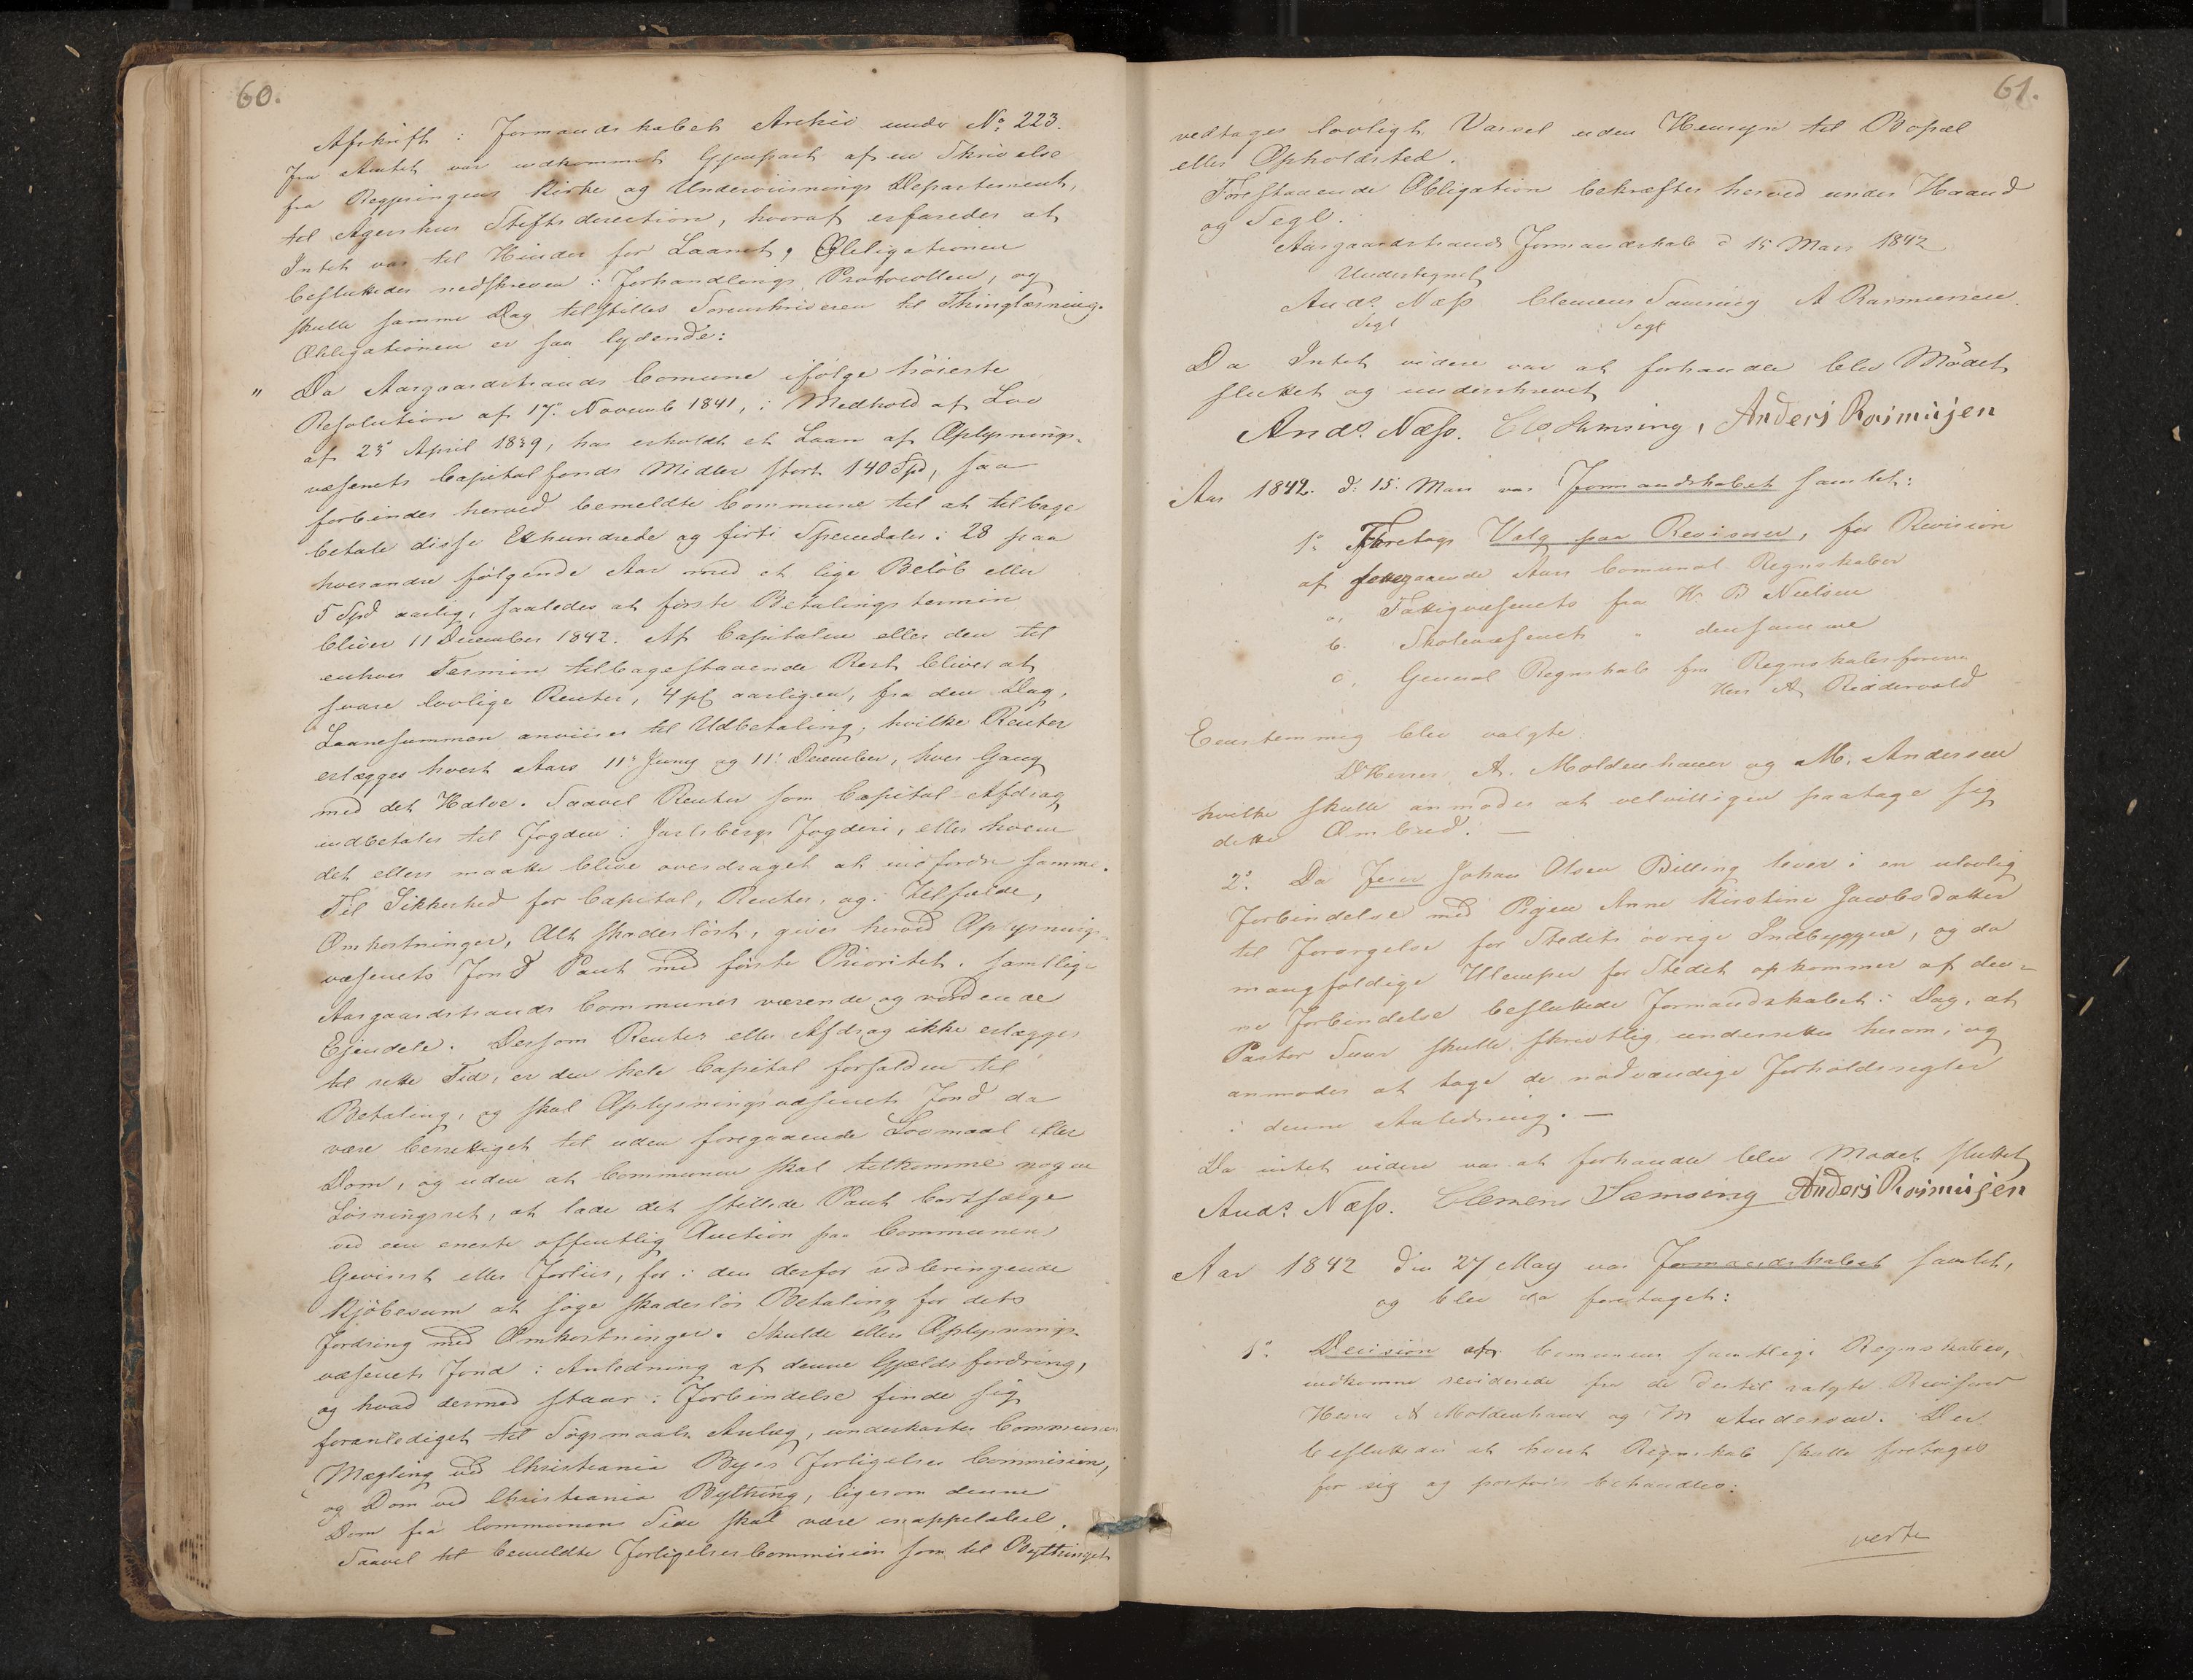 60.
Afskrift i Formandskabets Archiv under No. 223.
Fra Amtet var indkommet Gjenpart af en Skrivelse
fra Regjeringens Kirke og Underviisnings Departement,
til Agershus Stiftsdirection, hvoraf erfaredes at
Intet var til Hinder for Laanet, Obligationen
besluttedes nedskreven i Forhandlings Protocollen, og
skulle samme Dag tilstilles Sorenskriveren til Thinglæsning.
Obligationen er saa lydende:
" Da Aasgaardstrands Comune ifølge høieste
Resolution af 17de Novemb 1841, i Medhold af Lov
af 23de April 1839, har erholdt et Laan af Oplysnings-
væsenets Capitalfonds Midler stort 140 Spd, saa
forbindes herved bemeldte Commune til at tilbage
betale disse Ethundrede og firti Speciedaler i 28 paa
hverandre følgende Aar med et lige Beløb eller
5 Spd aarlig, saaledes at første Betalings termin
bliver 11 December 1842. Af Capitalen eller den til
enhver Termin tilbagestaaende Rest bliver at
svare lovlige Renter, 4 pC aarligen, fra den Dag,
Laanesummen anviises til Udbetaling, hvilke Renter
erlægges hvert Aars 11te Juny og 11te December, hver Gang
med det Halve. Saavel Renter som Capital-Afdrag
indbetales til Fogden i Jarlsbergs Fogderi, eller hvem
det ellers maatte blive overdraget at indfordre samme.
Til Sikkerhed for Capital, Renter, og i Tilfælde,
Omkostninger, Alt skadesløst, gives herved Oplysnings-
væsenets Fond Pant med første Prioritet i samtlige
Aasgaardstrands Communes værende og vordende
Ejendele. Dersom Renter eller Afdrag ikke erlægges
til rette Tid, er den hele Capital forfalden til
Betaling, og skal Oplysningsvæsenets Fond da
være berettiget til uden foregaaende Lovmaal eller
Dom, og uden at Communen skal tilkomme nogen
Løsningsret, at lade det stillede Pant bortsælge
ved een eneste offentlig Auction paa Communens
Gevinst eller Forliis, for i den derfor udbringende
Kjøbesum at søge skadesløs Betaling for dets
Fordring med Omkostninger. Skulde ellers Oplysnings-
væsenets Fond i Anledning af denne Gjældsfordring,
og hvad dermed staaer i Forbindelse finde sig
foranlediget til Søgsmaals Anlæg, underkastes Communen
Mægling ved Christiania Byes Forligelses Commission,
og Dom ved Christiania Bything, ligesom denne
Dom fra Communens Side skal være inappelabel.
Saavel til bemeldte Forligelses Commission som til Bythinget
61.
vedtages lovligt Varsel uden Hensyn til Bopæl
eller Opholdsted.
Forestaaende Obligation bekræftes herved under Haand
og Segl.
Aasgaardstrands Formandskab d 15 Mars 1842
Undertegnet
Ands. Næss Clemens Samsing A Rasmussen
Segl Segl
Da Intet videre var at forhandle blev Mödet
sluttet og underskrevet
Ands. Næss. Cle Samsing, Anders Rasmusen
Aar 1842. d: 15. Mars var Formandskabet samlet:
1o Foretoges Valg paa Revisorer, for Revision
af foregaaende Aars Comunal Regnskaber
a, Fattigvæsenets fra H. B Nielsen
b. Skolevæsenets " densamme
c, General Regnskab fra Regnskabsføreren
Herr A, Riddervold
Eenstemmig blev valgte:
DHerrer A. Moldenhauer og M. Andersen
hvilke skulle anmodes at velvilligen paatage sig
dette Ombud. —
2o. Da Feier Johan Olsen Billing lever i en ulovlig
Forbindelse med Pigen Anne Kirstine Jacobsdatter
til Forargelse for Stedets øvrige Indbyggere, og da
mangfoldige Ulemper for Stedet opkommer af den-
ne Forbindelse besluttede Formandskabet i Dag, at
Pastor skulle skriftlig underrettes herom, og
anmodes at tage de nødvendige Forholdsregler
i denne Anledning. —
Da intet videre var at forhandle blev Mødet sluttet
Ands. Næss. Clemens Samsing Anders Rasmusen
Aar 1842 den 27 May var Formandskabet samlet,
og blev da foretaget:
1o. Decision Comunens samtlige Regnskaber,
indkomne reviderede fra de dertil valgte Revisorer
Herrer A Moldenhauer og M Andersen. Det
besluttedes at hvert Regnskab skulle foretages
for sig og behandles:
verte